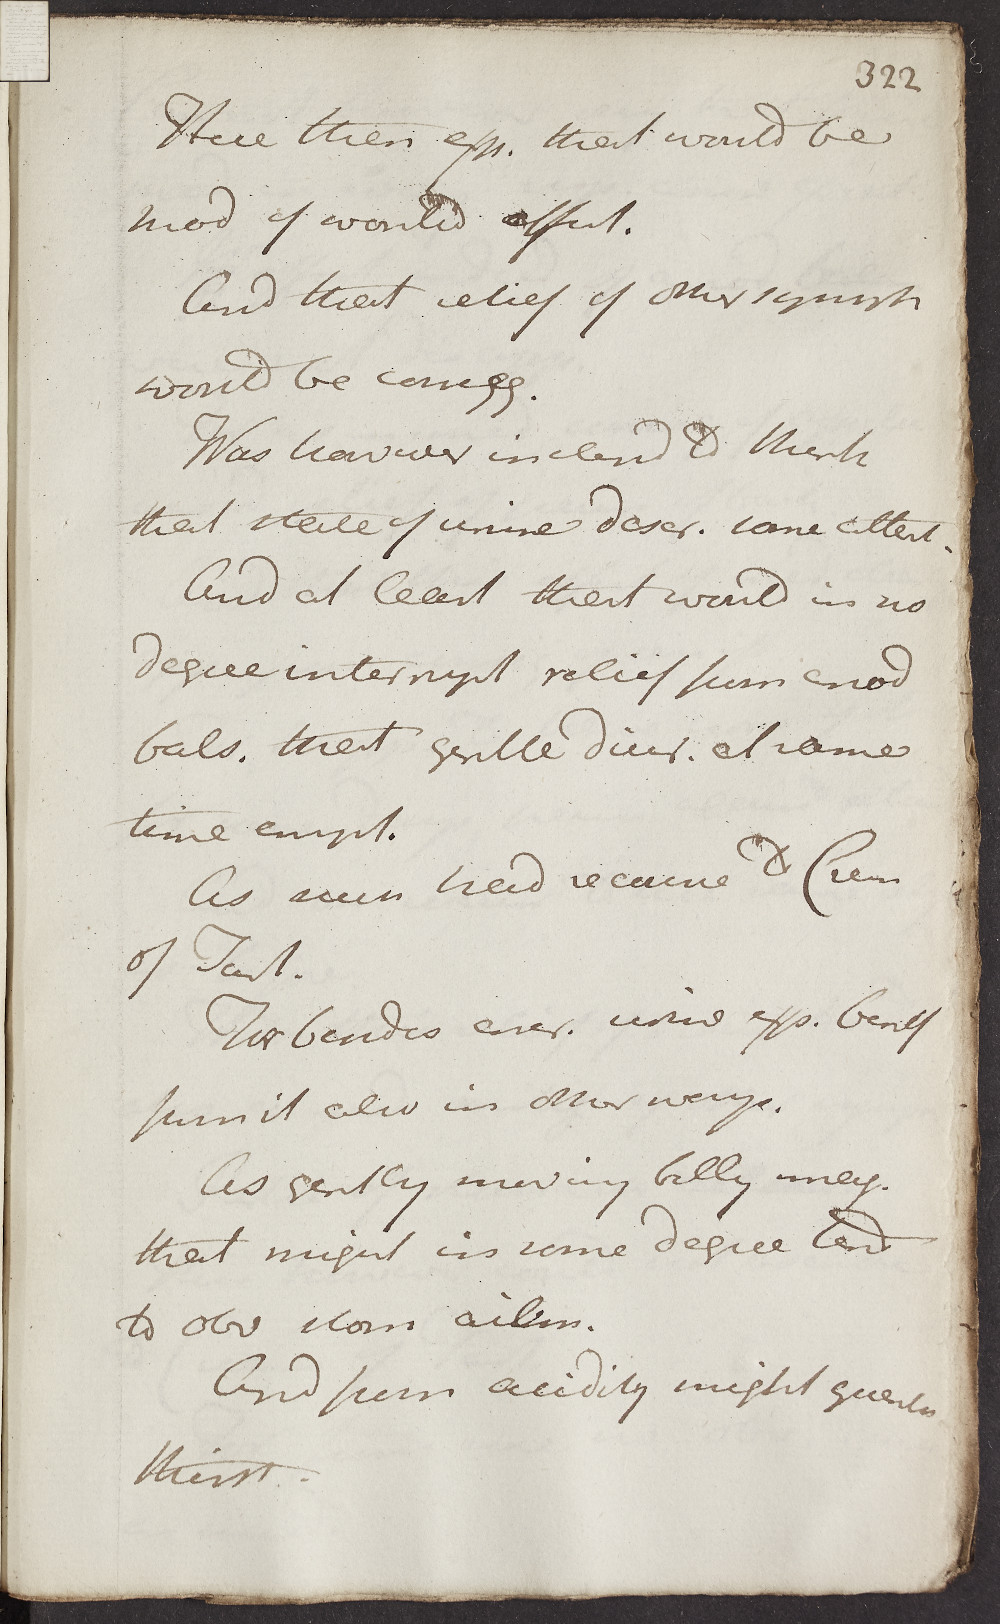 322
Here then exp. that would be
mod if would effect.
And that relief of other sympt
would be conseq.
Was however inclend to think
that state of urine deser. some attent.
And at least that would in no
degree interrupt relief from anod
bals. that gentle diur. at same
time empl.
As soon had recourse to Crem
of Tart.
For besides encr. urine exp. benef
from it also in other ways.
As gently moving belly may.
that might in some degree tend
to obv stom ailm.
And from acidity might quench
thirst.